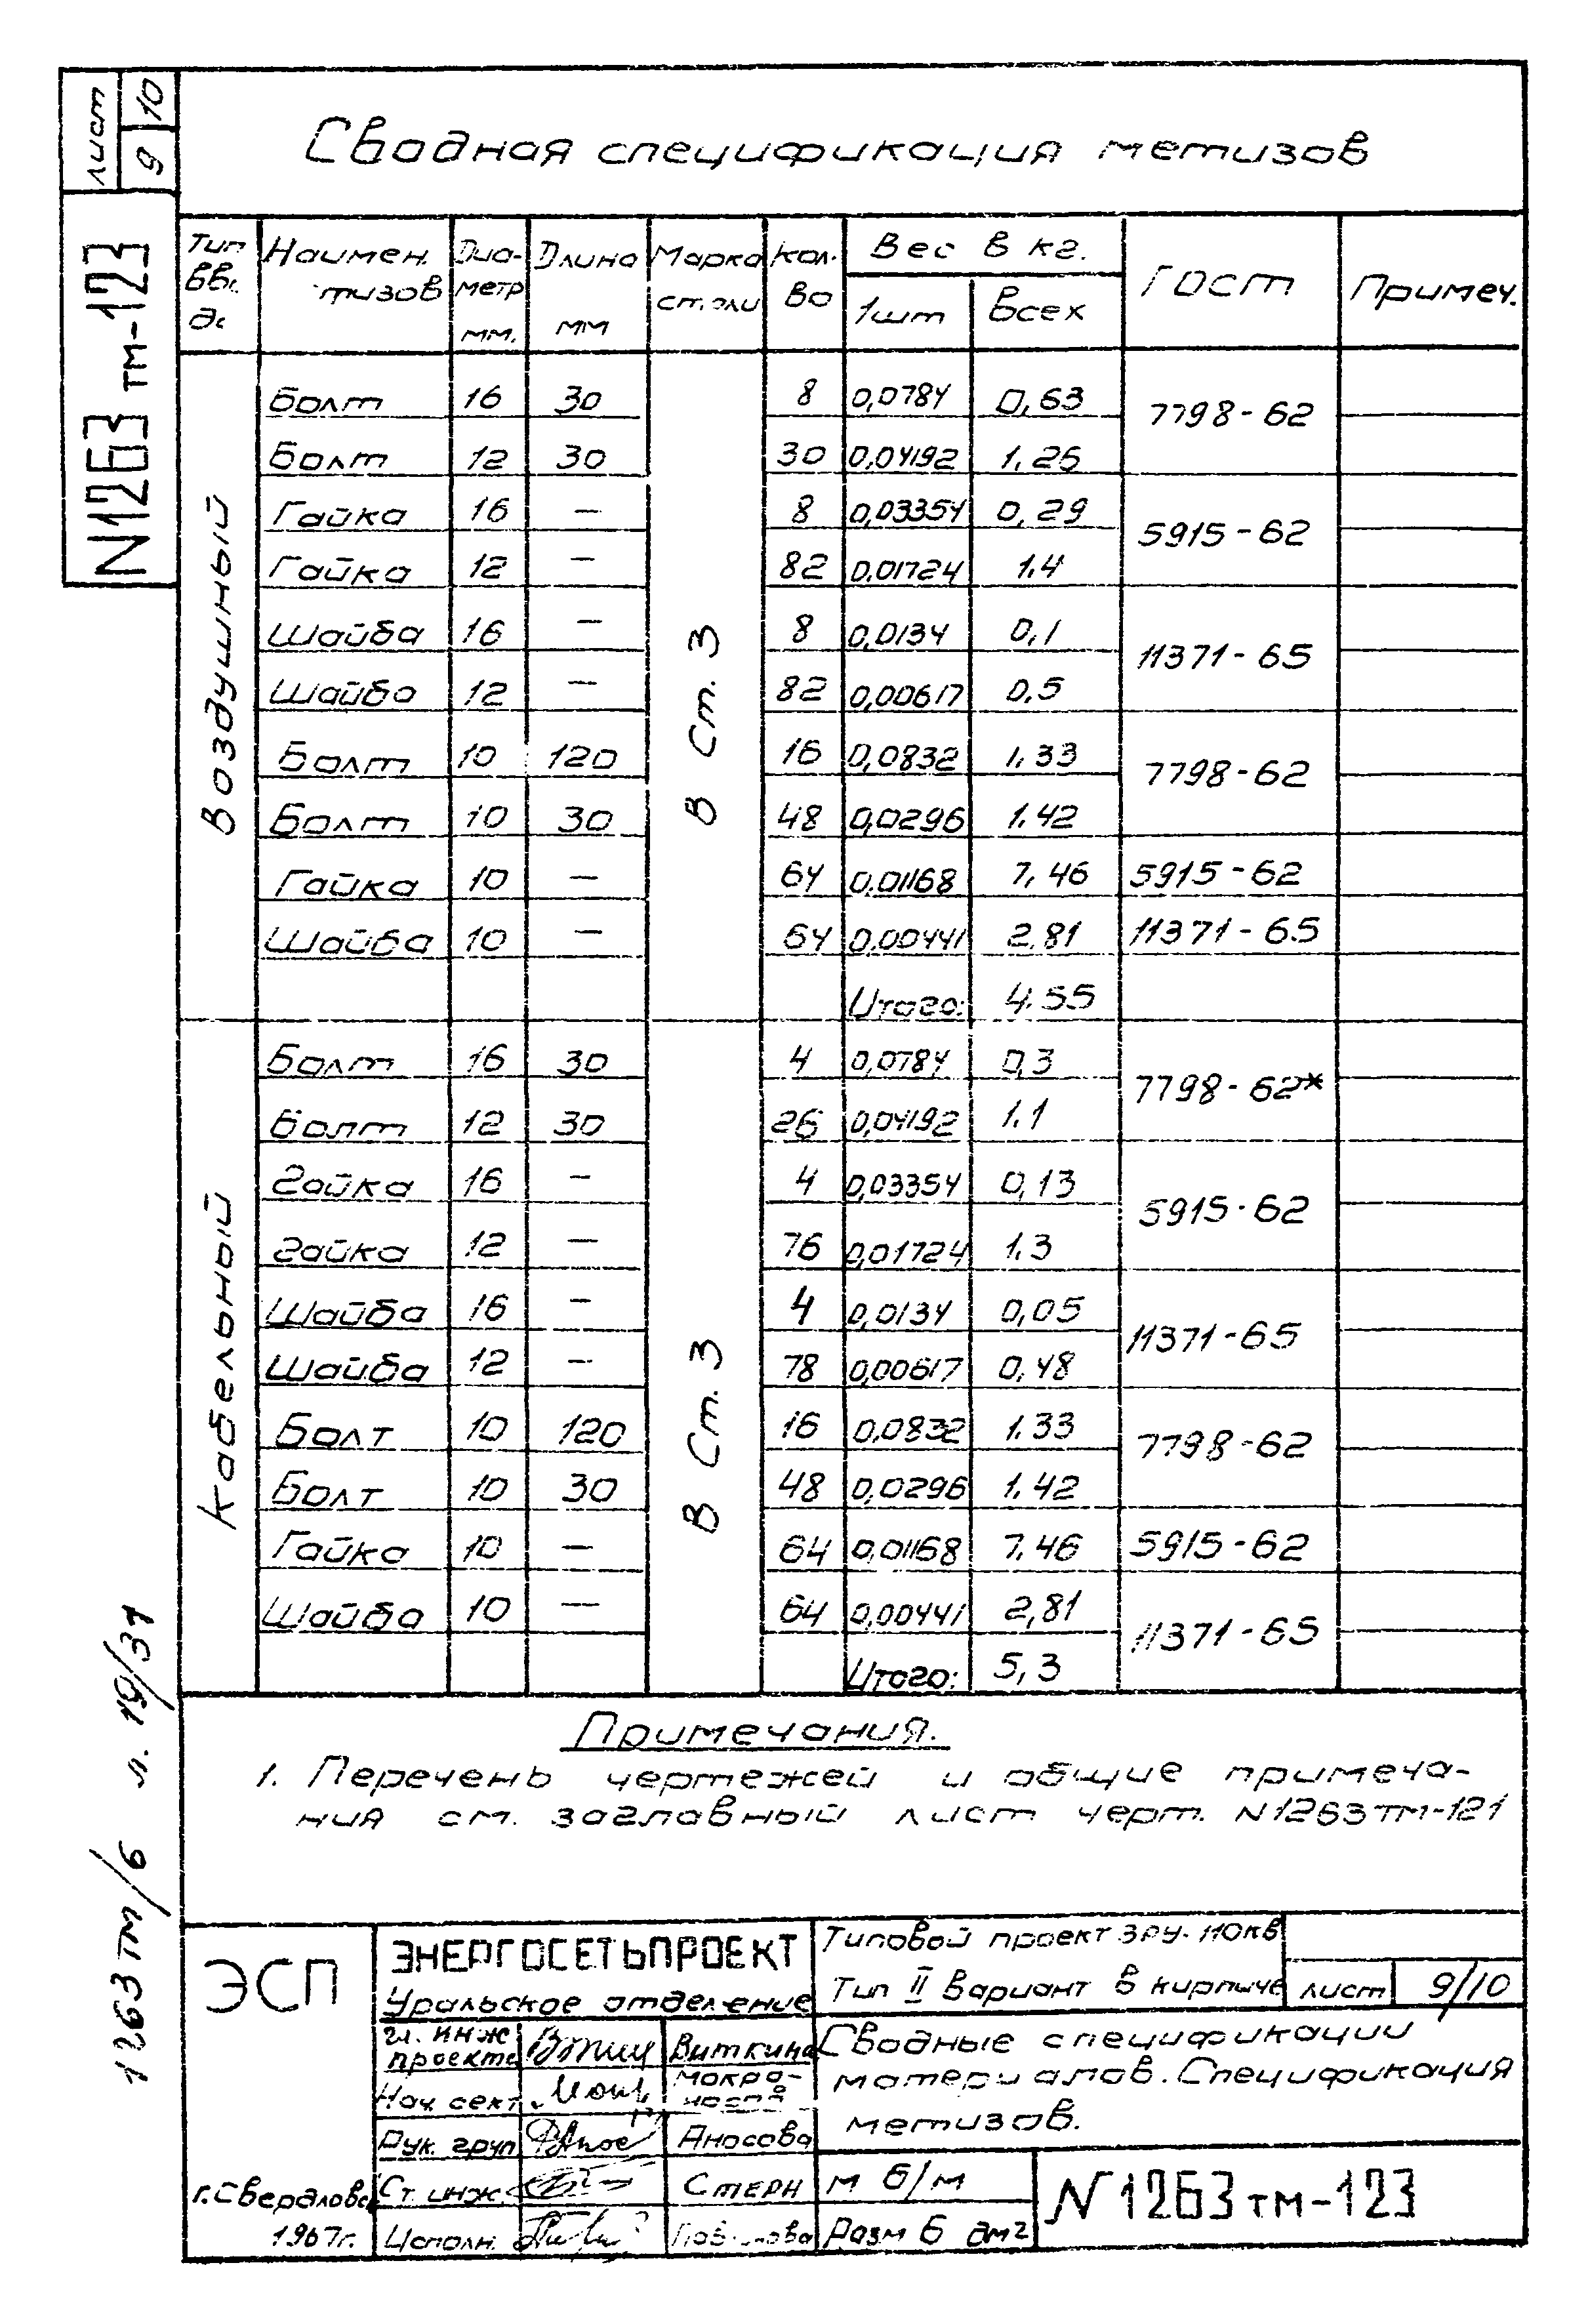 лист
9 10
N1263 тм-123
Сводная спецификация метизов
Тип вв. Наимен. тизов Диаметр мм. Длина мм Марка стали Кол. во Вес в кг. 1шт Всех ГОСТ Примеч.
Воздушный
В Ст. 3
Болт 16 30 8 0,0784 0,63 7798-62
Болт 12 30 30 0,04192 1.26
Гайка 16 — 8 0,03354 0,29 5915-62
Гайка 12 — 82 0,01724 1.4
Шайба 16 — 8 0,0134 0,1 11371-65
Шайба 12 — 82 0,00617 0.5
Болт 10 120 16 0,0832 1,33 7798-62
Болт 10 30 48 0,0296 1.42
Гайка 10 — 64 0.01168 7,46 5915-62
Шайба 10 — 64 0,00441 2,81 11371-65
Итого: 4.55
Кабельный
В Ст. 3
Болт 16 30 4 0,0784 0,3 7798-62*
Болт 12 30 26 0,04192 1.1
Гайка 16 — 4 0,03354 0,13 5915-62
Гайка 12 — 76 0,01724 1.3
Шайба 16 — 4 0,0134 0,05 11371-65
Шайба 12 — 78 0,00617 0,48
Болт 10 120 16 0,0832 1.33 7798-62
Болт 10 30 48 0,0296 1.42
Гайка 10 — 64 0,01168 7.46 5915-62
Шайба 10 — 64 0,00441 2,81 11371-65
Итого: 5,3
Примечания.
1. Перечень чертежей и общие примеча-
ния см. заглавный лист черт. N1263тм-121
1263тм/6 л. 19/31
ЭСП
г. Свердловск
1967г.
ЭНЕРГОСЕТЬПРОЕКТ
Уральское отделение
Гл. инж проекта Виткина
Нач. сект.
Рук. груп Аносова
Ст. инж. Стерн
Исполн.
Типовой проект ЗРУ-110кв
Тип II Вариант в кирпиче лист 9/10
Сводные спецификации
материалов. Спецификация
метизов.
М б/м
Разм 6 дм2
N1263тм-123